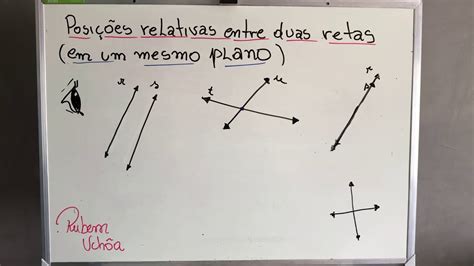 Posições relativas entre duas retas
(em um mesmo plano)
r s
t u
r
s
Rubem
Uchôa